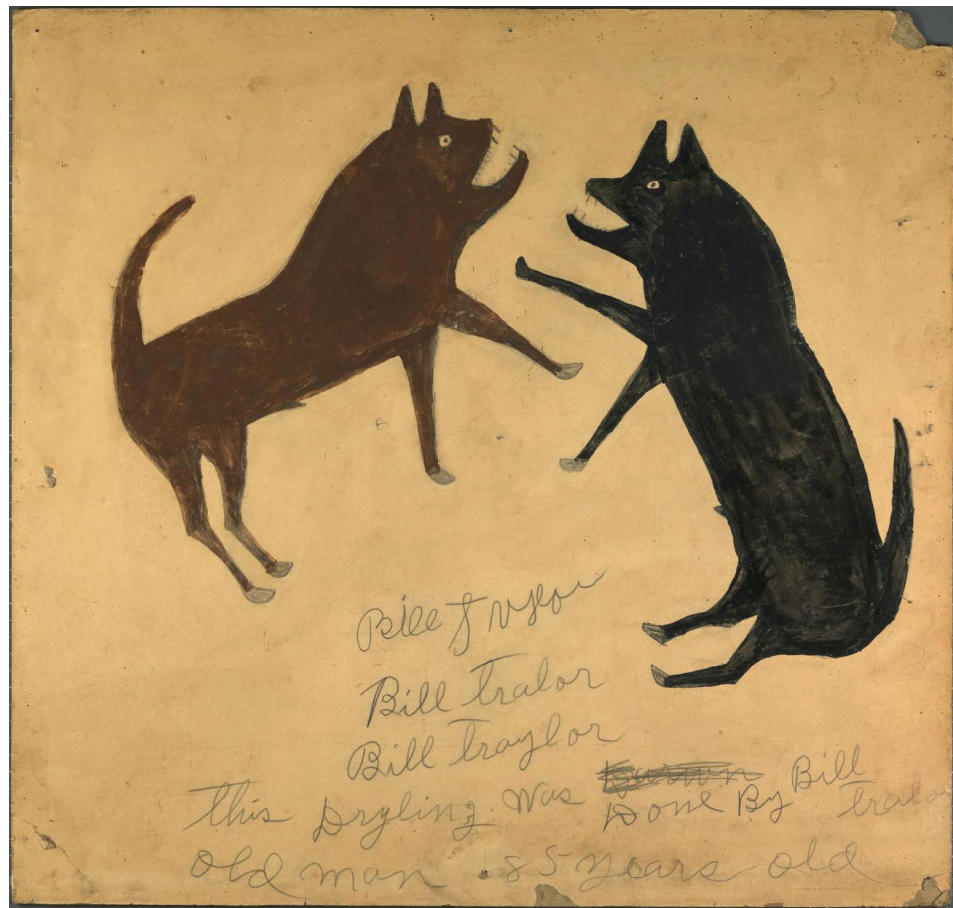 Bill
Bill Tralor
Bill Traylor
this Dryling was Done By Bill
tralor
old man 85 years old